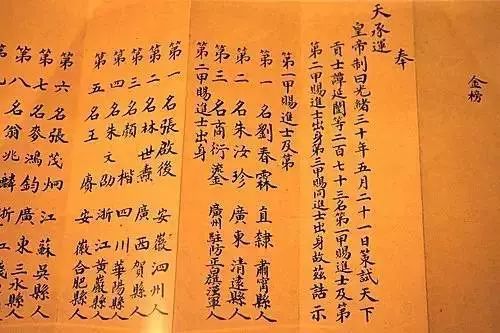 金榜
奉
天承運
皇帝制曰光緒三十年五月二十一日策試天下
貢士譚延闓等二百七十三名第一甲賜進士及第
第二甲賜進士出身第三甲賜同進士出身故茲誥示
第一甲賜進士及第
第一名劉春霖 直隸肅寧縣人
第二名朱汝珍 廣東清遠縣人
第三名商衍鎏 廣州駐防正白旗漢軍人
第二甲賜進士出身
第一名張啟後 安徽泗州人
第二名林世燾 廣西賀縣人
第三名顏楷 四川華陽縣人
第四名朱文劭 浙江黃巖縣人
第五名王賡 安徽合肥縣人
第六名張茂炯 江蘇吳縣人
第七名麥鴻鈞 廣東三水縣人
名翁兆麟 浙江